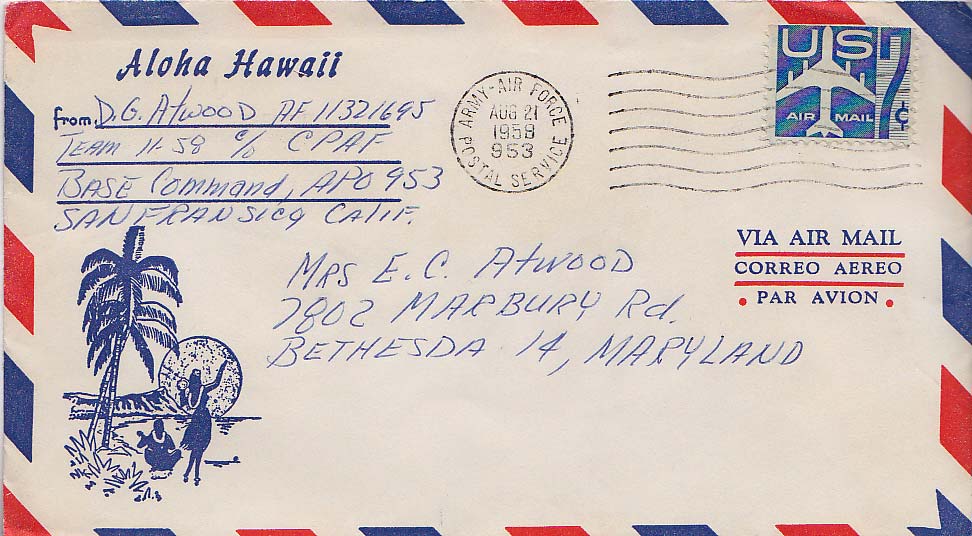 Aloha Hawaii
from D.G. Atwood AF 11321695
TEAM 11-58 c/o CPAF
BASE Command, APO 953
SAN FRANSICO CALIF.
ARMY-AIR FORCE
AUG 21
1959
953
POSTAL SERVICE
US 7¢
AIR MAIL
VIA AIR MAIL
CORREO AEREO
• PAR AVION •
MRS E.C. Atwood
7802 MARBURY Rd.
BETHESDA 14, MARYLAND